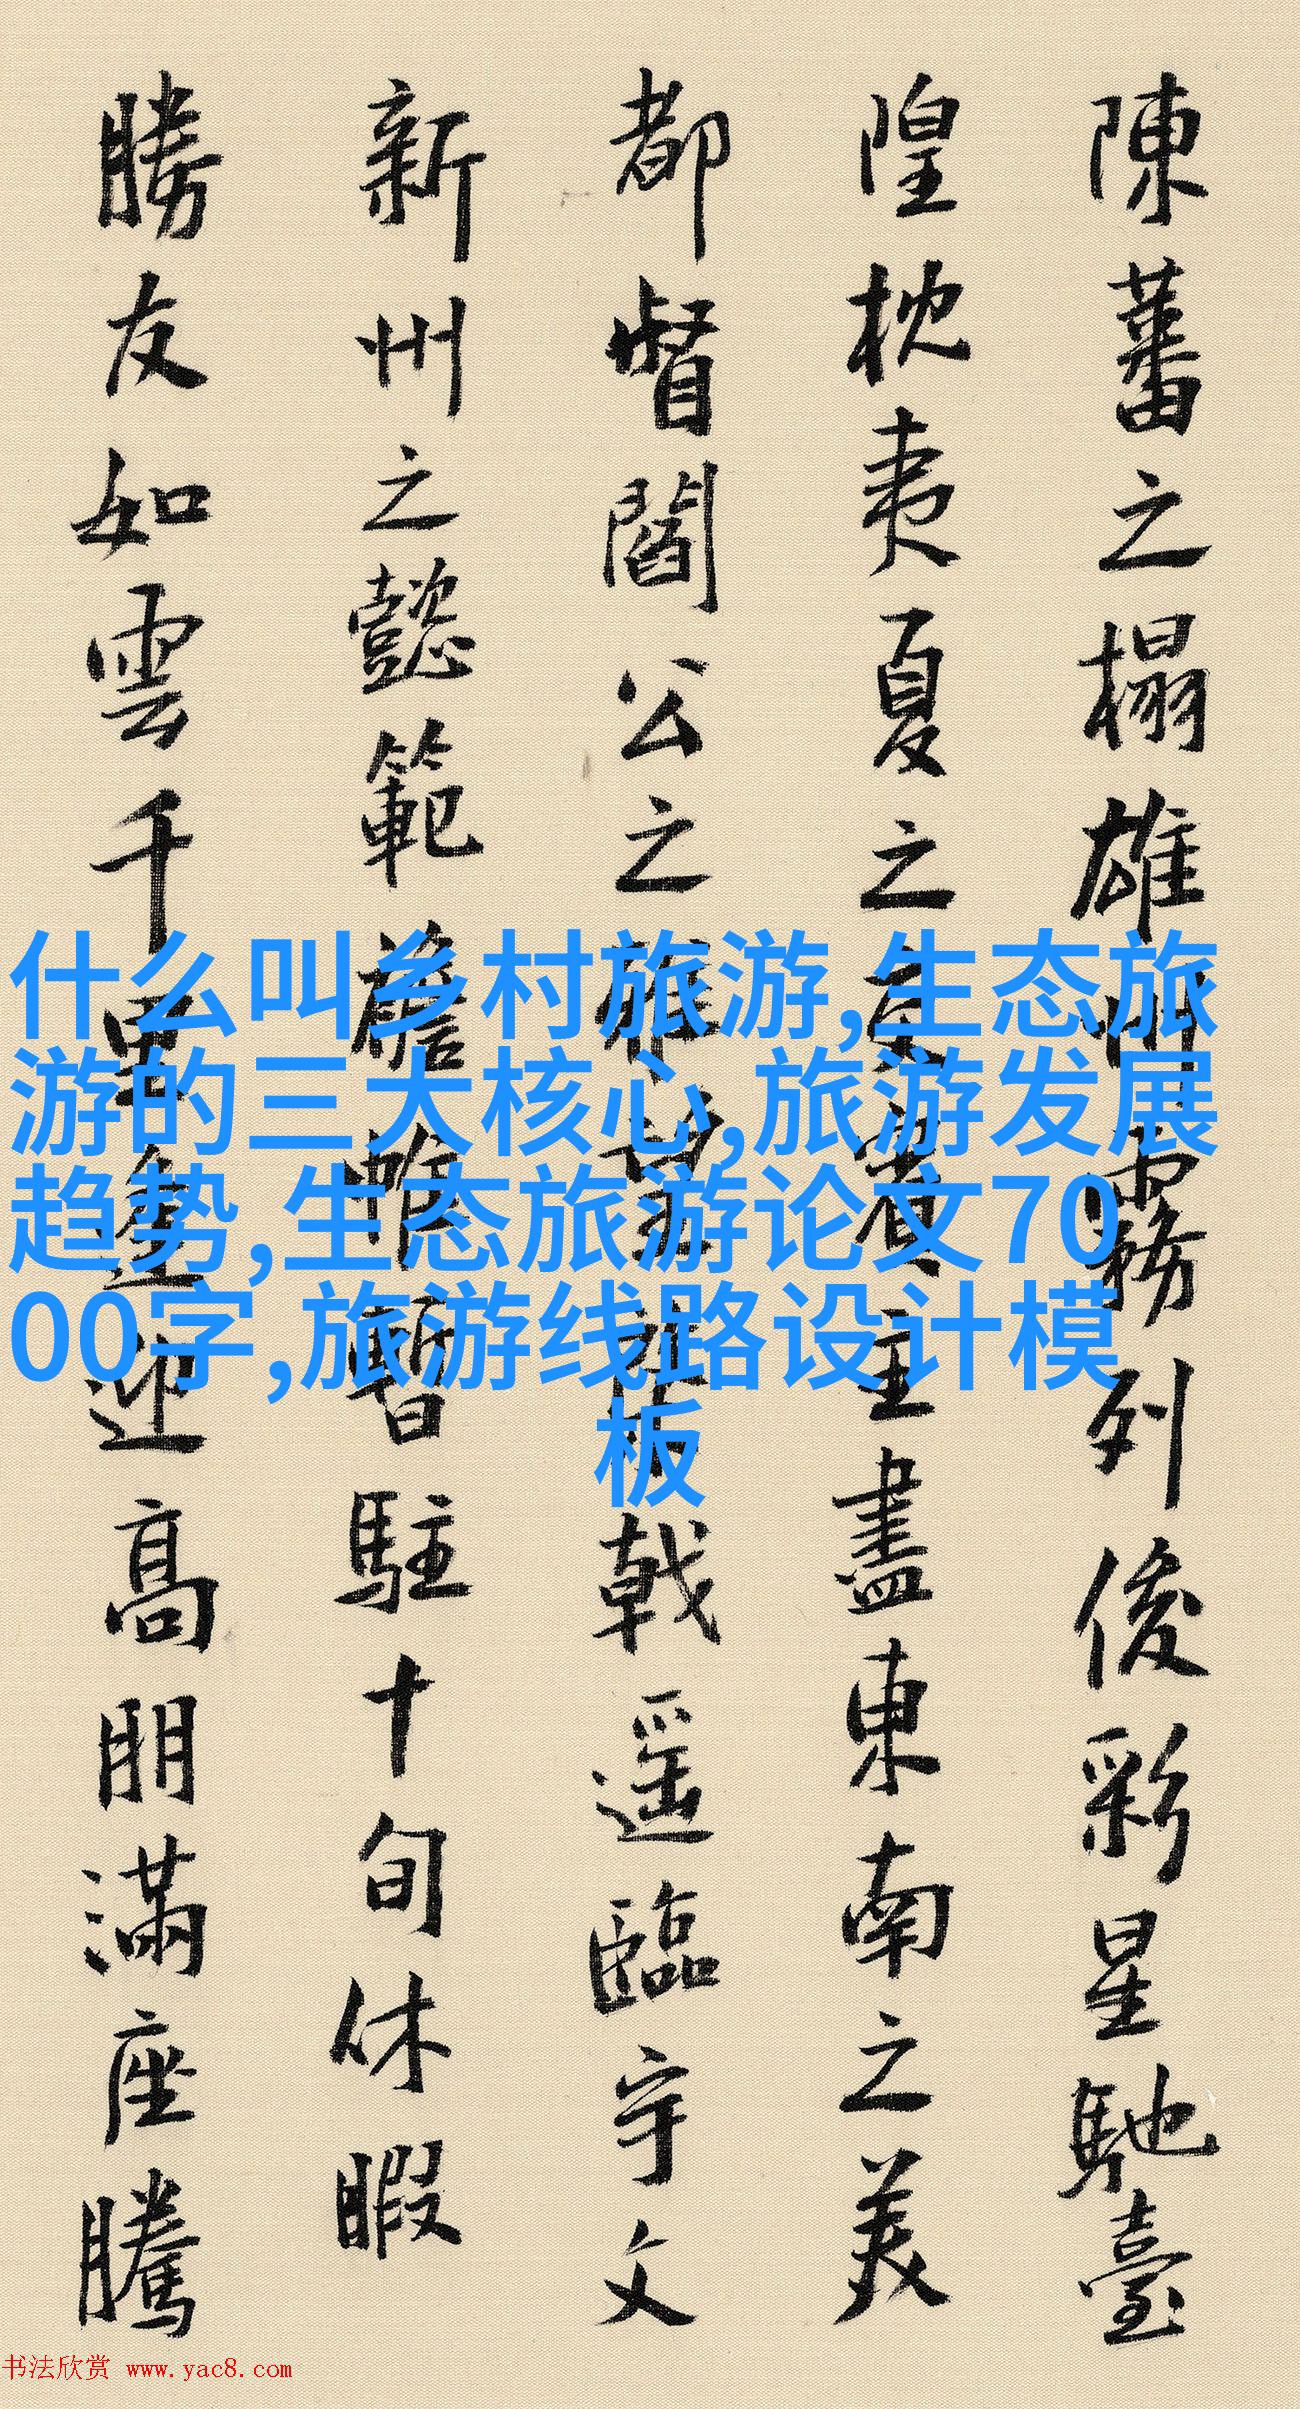 陳蕃之榻雄州霧列俊彩星馳臺
隍枕夷夏之交賓主盡東南之美
都督閻公之雅望棨戟遥臨宇文
新州之懿範襜帷暫駐十旬休暇
勝友如雲千里逢迎高朋滿座騰
什么叫乡村旅游,生态旅
游的三大核心,旅游发展
趋势,生态旅游论文70
00字,旅游线路设计模
板
书法欣赏 www.yac8.com